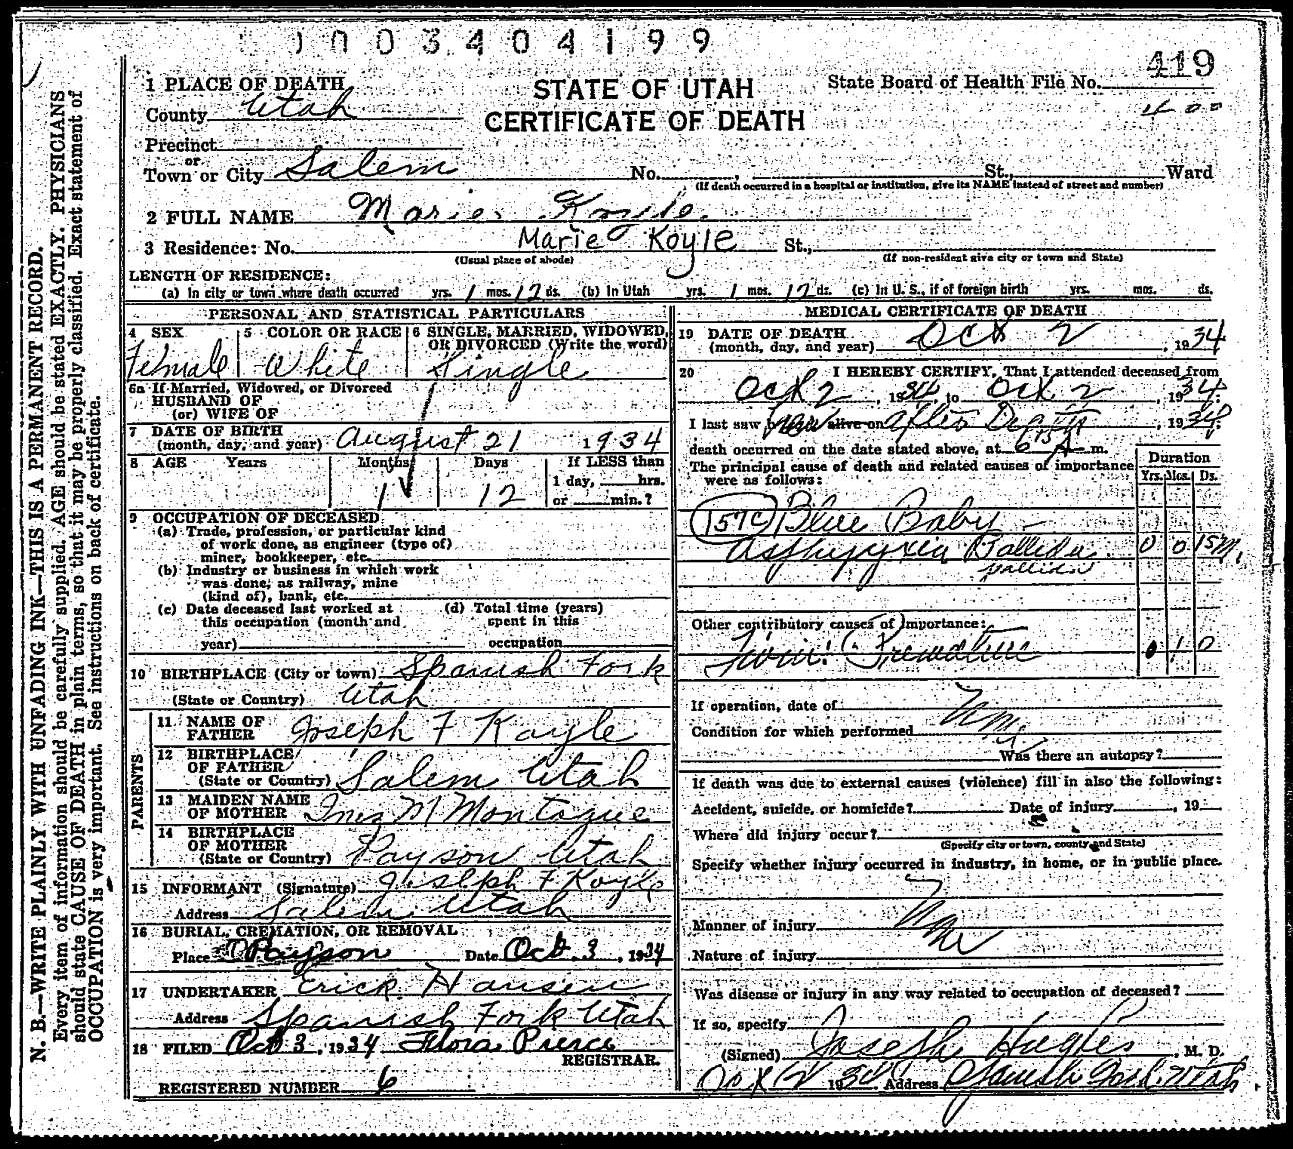 1003404199
419
1 PLACE OF DEATH
STATE OF UTAH
CERTIFICATE OF DEATH
State Board of Health File No.
4 00
County Utah
Precinct
or
Town or City Salem No. , St., Ward
(If death occurred in a hospital or institution, give its NAME instead of street and number)
2 FULL NAME Marie Koyle
3 Residence: No. Marie Koyle St.,
(Usual place of abode) (If non-resident give city or town and State)
LENGTH OF RESIDENCE:
(a) In city or town where death occurred yrs. 1 mos. 12 ds. (b) In Utah yrs. 1 mos. 12 ds. (c) In U. S., if of foreign birth yrs. mos. ds.
PERSONAL AND STATISTICAL PARTICULARS
4 SEX Female
5 COLOR OR RACE White
6 SINGLE, MARRIED, WIDOWED, OR DIVORCED (Write the word) Single
6a If Married, Widowed, or Divorced
HUSBAND OF
(or) WIFE OF
7 DATE OF BIRTH
(month, day, and year) August 21 1934
8 AGE Years Months Days If LESS than
1 12 1 day, hrs.
or min.?
9 OCCUPATION OF DECEASED
(a) Trade, profession, or particular kind
of work done, as engineer (type of)
miner, bookkeeper, etc.
(b) Industry or business in which work
was done, as railway, mine
(kind of), bank, etc.
(c) Date deceased last worked at
this occupation (month and
year)
(d) Total time (years)
spent in this
occupation
10 BIRTHPLACE (City or town) Spanish Fork
(State or Country) Utah
PARENTS
11 NAME OF
FATHER Joseph F Koyle
12 BIRTHPLACE
OF FATHER
(State or Country) Salem Utah
13 MAIDEN NAME
OF MOTHER Inez M Montague
14 BIRTHPLACE
OF MOTHER
(State or Country) Payson Utah
15 INFORMANT (Signature) Joseph F Koyle
Address Salem Utah
16 BURIAL, CREMATION, OR REMOVAL
Place Payson Date Oct 3, 1934
17 UNDERTAKER Erick Hansen
Address Spanish Fork Utah
18 FILED Oct 3, 1934 Flora Pierce
REGISTRAR.
REGISTERED NUMBER 6
MEDICAL CERTIFICATE OF DEATH
19 DATE OF DEATH
(month, day, and year) Oct 2, 1934
20 I HEREBY CERTIFY, That I attended deceased from
Oct 2, 1934, to Oct 2, 1934.
I last saw her alive on after Death, 1934;
death occurred on the date stated above, at 6 15 A m.
The principal cause of death and related causes of importance
were as follows:
Duration
Yrs. Mos. Ds.
157c Blue Baby -
Asphyxia Pallida 0 0 15 M.
pallida
Other contributory causes of importance:
Twin: Premature 0 1 0
If operation, date of
Condition for which performed
Was there an autopsy?
If death was due to external causes (violence) fill in also the following:
Accident, suicide, or homicide? Date of injury , 19
Where did injury occur?
(Specify city or town, county and State)
Specify whether injury occurred in industry, in home, or in public place.
Manner of injury
Nature of injury
Was disease or injury in any way related to occupation of deceased?
If so, specify
(Signed) Joseph Hughes, M. D.
Oct 2 1934 Address Spanish Fork Utah
N. B.—WRITE PLAINLY WITH UNFADING INK—THIS IS A PERMANENT RECORD.
Every item of information should be carefully supplied. AGE should be stated EXACTLY. PHYSICIANS
should state CAUSE OF DEATH in plain terms, so that it may be properly classified. Exact statement of
OCCUPATION is very important. See instructions on back of certificate.